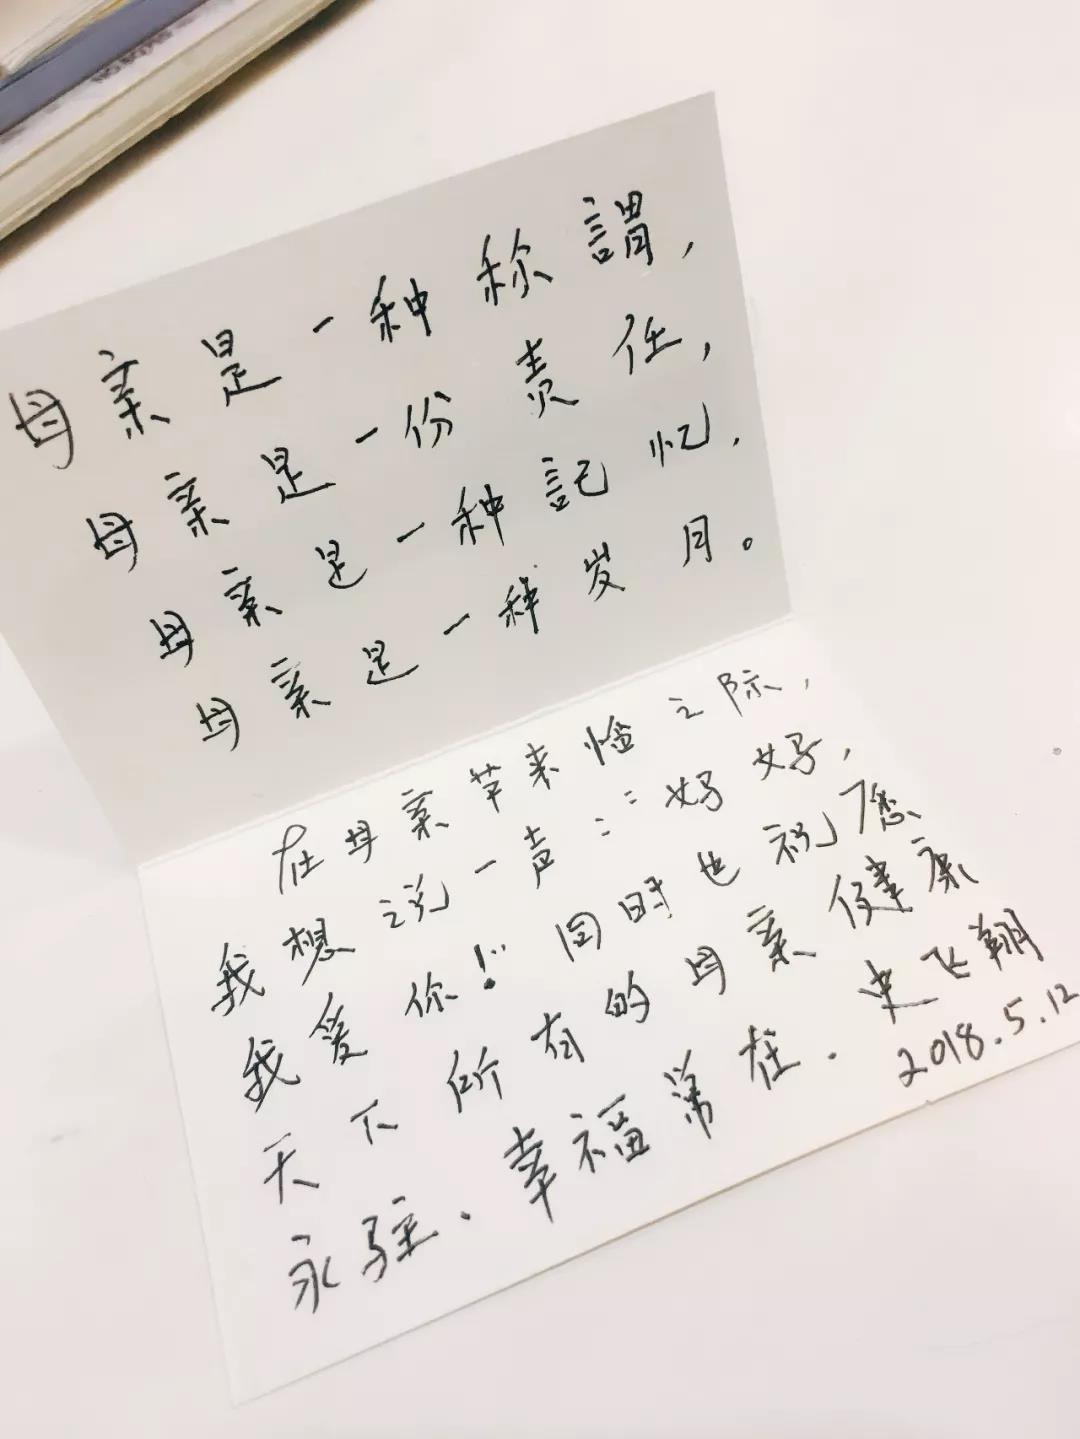 母亲是一种称謂，
母亲是一份责任，
母亲是一种記忆，
母亲是一种岁月。
在母亲节来临之际，
我想说一声：妈妈，
我爱你！同时也祝愿
天下所有的母亲健康
永驻、幸福常在．
史飞翔
2018.5.12